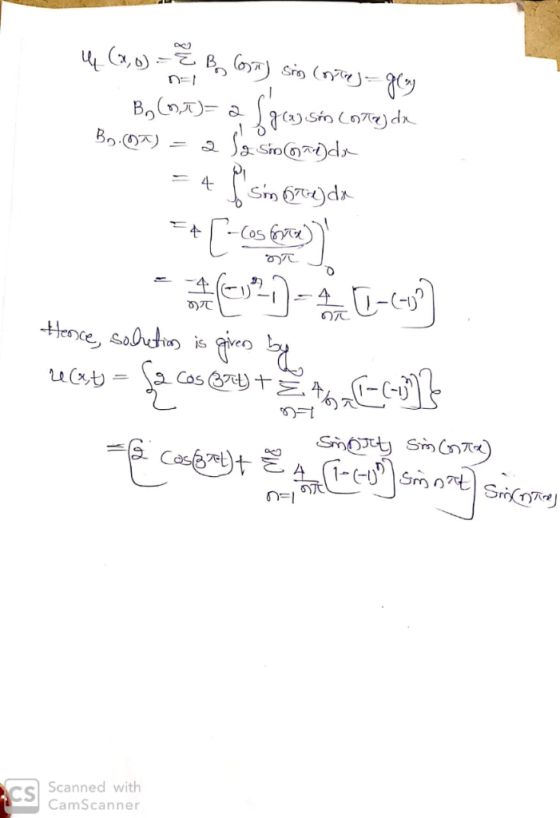 u_t (x,0) = ∞Σn=1 B_n (nπ) sin (nπx) = g(x)
B_n (n,π) = 2 ∫_0^1 g(x) sin (nπx) dx
B_n.(nπ) = 2 ∫_0^1 2 sin(nπx) dx
= 4 ∫_0^1 sin(nπx) dx
= 4 [-cos(nπx)/nπ]_0^1
= -4/nπ [(-1)^n - 1] = 4/nπ [1-(-1)^n]
Hence, solution is given by
u(x,t) = {2 cos(3πt) + ∞Σn=1 4/nπ [1-(-1)^n]}
sin(nπt) sin(nπx)
= [2 cos(3πt) + ∞Σn=1 4/nπ [1-(-1)^n] sin nπt] sin(nπx)
CS Scanned with
CamScanner